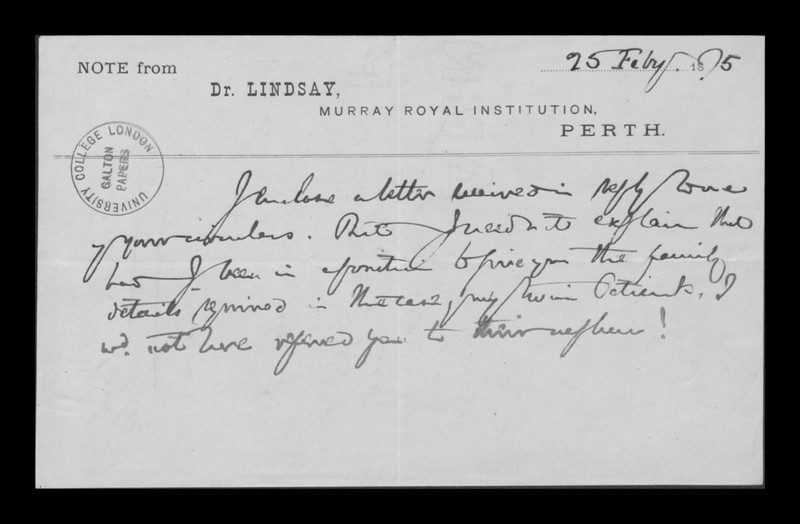 NOTE from
25 Feby. 1875
Dr. LINDSAY,
MURRAY ROYAL INSTITUTION,
PERTH.
UNIVERSITY COLLEGE LONDON
GALTON
PAPERS
I enclose a letter received in reply to one
of your circulars. But I need n't explain that
had I been in a position to give you the family
details required in the case of my twin Patients, I
wd. not have referred you to their nephew!